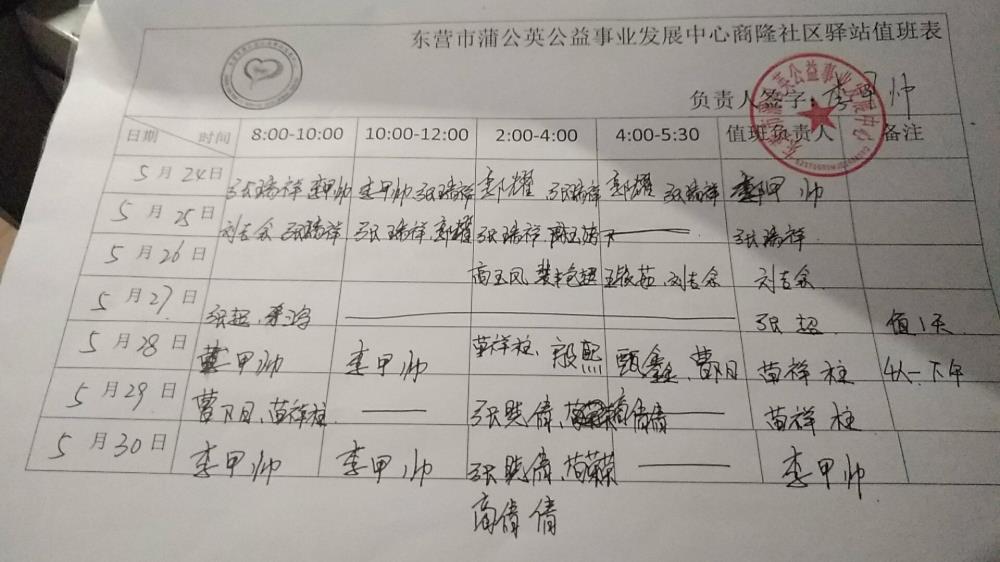 东营市蒲公英公益事业发展中心商隆社区驿站值班表
负责人签字: 李甲帅
日期 时间 8:00-10:00 10:00-12:00 2:00-4:00 4:00-5:30 值班负责人 备注
5月24日 张瑞祥 李甲帅 李甲帅、张瑞祥 郭耀、张瑞祥 郭耀、张瑞祥 李甲帅
5月25日 刘吉余 张瑞祥 张瑞祥、郭耀 张瑞祥 张瑞祥
5月26日 商玉凤 刘吉余 刘吉余
5月27日 张超、 张超 值1天
5月28日 李甲帅 李甲帅 苗祥柱、殷熙 甄鑫、曹月 苗祥柱 下午
5月29日 曹月、苗祥柱 张晓倩、 苗祥柱
5月30日 李甲帅 李甲帅 张晓倩、 李甲帅
商倩倩